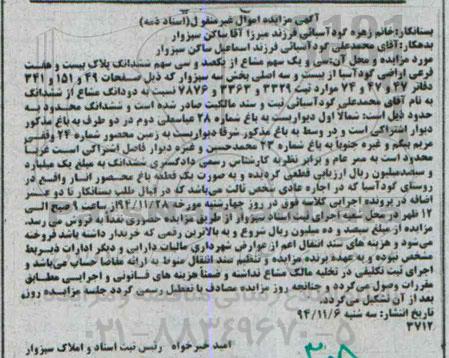 آگهی مزایده اموال غیرمنقول(اسناد ذمه)
بستانکار:خانم زهره گودآسیائی فرزند میرزا آقا ساکن سبزوار
بدهکار:آقای محمدعلی گودآسیائی فرزند اسماعیل ساکن سبزوار
مورد مزایده و محل آن:سی و یک سهم مشاع از یکصد و سی سهم ششدانگ پلاک بیست و هشت
فرعی اراضی گودآسیا از بیست و سه اصلی بخش سه سبزوار که ذیل صفحات ۴۹ و ۱۵۱ و ۳۴۱
دفاتر ۲۷ و ۴۷ و ۷۴ موارد ثبت ۳۳۲۹ و ۳۳۶۳ و ۷۸۷۶ نسبت به دودانگ مشاع از ششدانگ
به نام آقای محمدعلی گودآسیائی ثبت و سند مالکیت صادر شده است و ششدانگ محدود به
حدود ذیل است: شمالا اول دیواریست به باغ شماره ۲۸ عباسعلی دوم در دو طرف به باغ مذکور
دیوار اشتراکی است و در وسط به باغ مذکور شرقا دیواریست به زمین محصور شماره ۲۴ وقفی
مریم بیگم و غیره جنوبا به باغ شماره ۲۳ محمدحسین و غیره دیوار فاصل اشتراکی است غربا
محدود است به ممر عام و برابر نظریه کارشناس رسمی دادگستری ششدانگ به مبلغ یک میلیارد
و سیصدمیلیون ریال ارزیابی قطعی گردیده و به صورت یک قطعه باغ محصور انار واقع در
روستای گودآسیا که در اجاره عادی شخص ثالث می‌باشد که در قبال طلب بستانکار تا دو عشر
اضافه در پرونده اجرایی کلاسه فوق در روز چهارشنبه مورخه ۹۴/۱۱/۲۸ از ساعت ۹ صبح الی
۱۲ ظهر در محل شعبه اجرای ثبت اسناد سبزوار از طریق مزایده حضوری نقدا به فروش می رسد
مزایده از مبلغ سیصد و ده میلیون ریال شروع و به بالاترین قیمت که خریدار داشته باشد فروخته
می‌شود و هزینه های سند انتقال اعم از عوارض شهرداری مالیات دارایی و دیگر ادارات ذیربط
مشخص نبوده و به عهده برنده مزایده و تنظیم سند انتقال منوط به ارائه مفاصا حساب می‌باشد و
اجرای ثبت تکلیفی در تخلیه مالکیت مشاع نداشته و ضمناً هزینه های قانونی و اجرایی مطابق
مقررات وصول می‌گردد و چنانچه روز مزایده مصادف با تعطیل رسمی گردد جلسه مزایده روز
بعد از آن تشکیل می‌گردد.
تاریخ انتشار: سه شنبه ۹۴/۱۱/۶
۳۷۱۲
امید خبرخواه رئیس ثبت اسناد و املاک سبزوار
۰۲۱-۸۸۳۴۹۶۷۰-۵